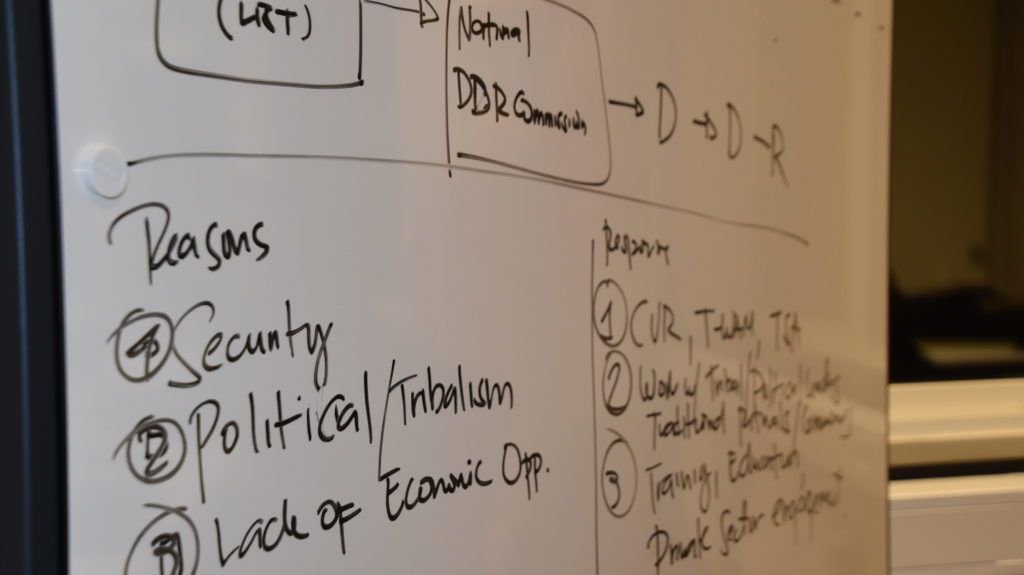 (LRT)
National
DDR Commission
D → D - R
Reasons
1 Security
2 Political/Tribalism
3 Lack of Economic Opp.
Response
1 CVR, T-WAM, TSA
2 Work w/ Tribal/Political
Traditional
3 Training, Education,
Private Sector engagement